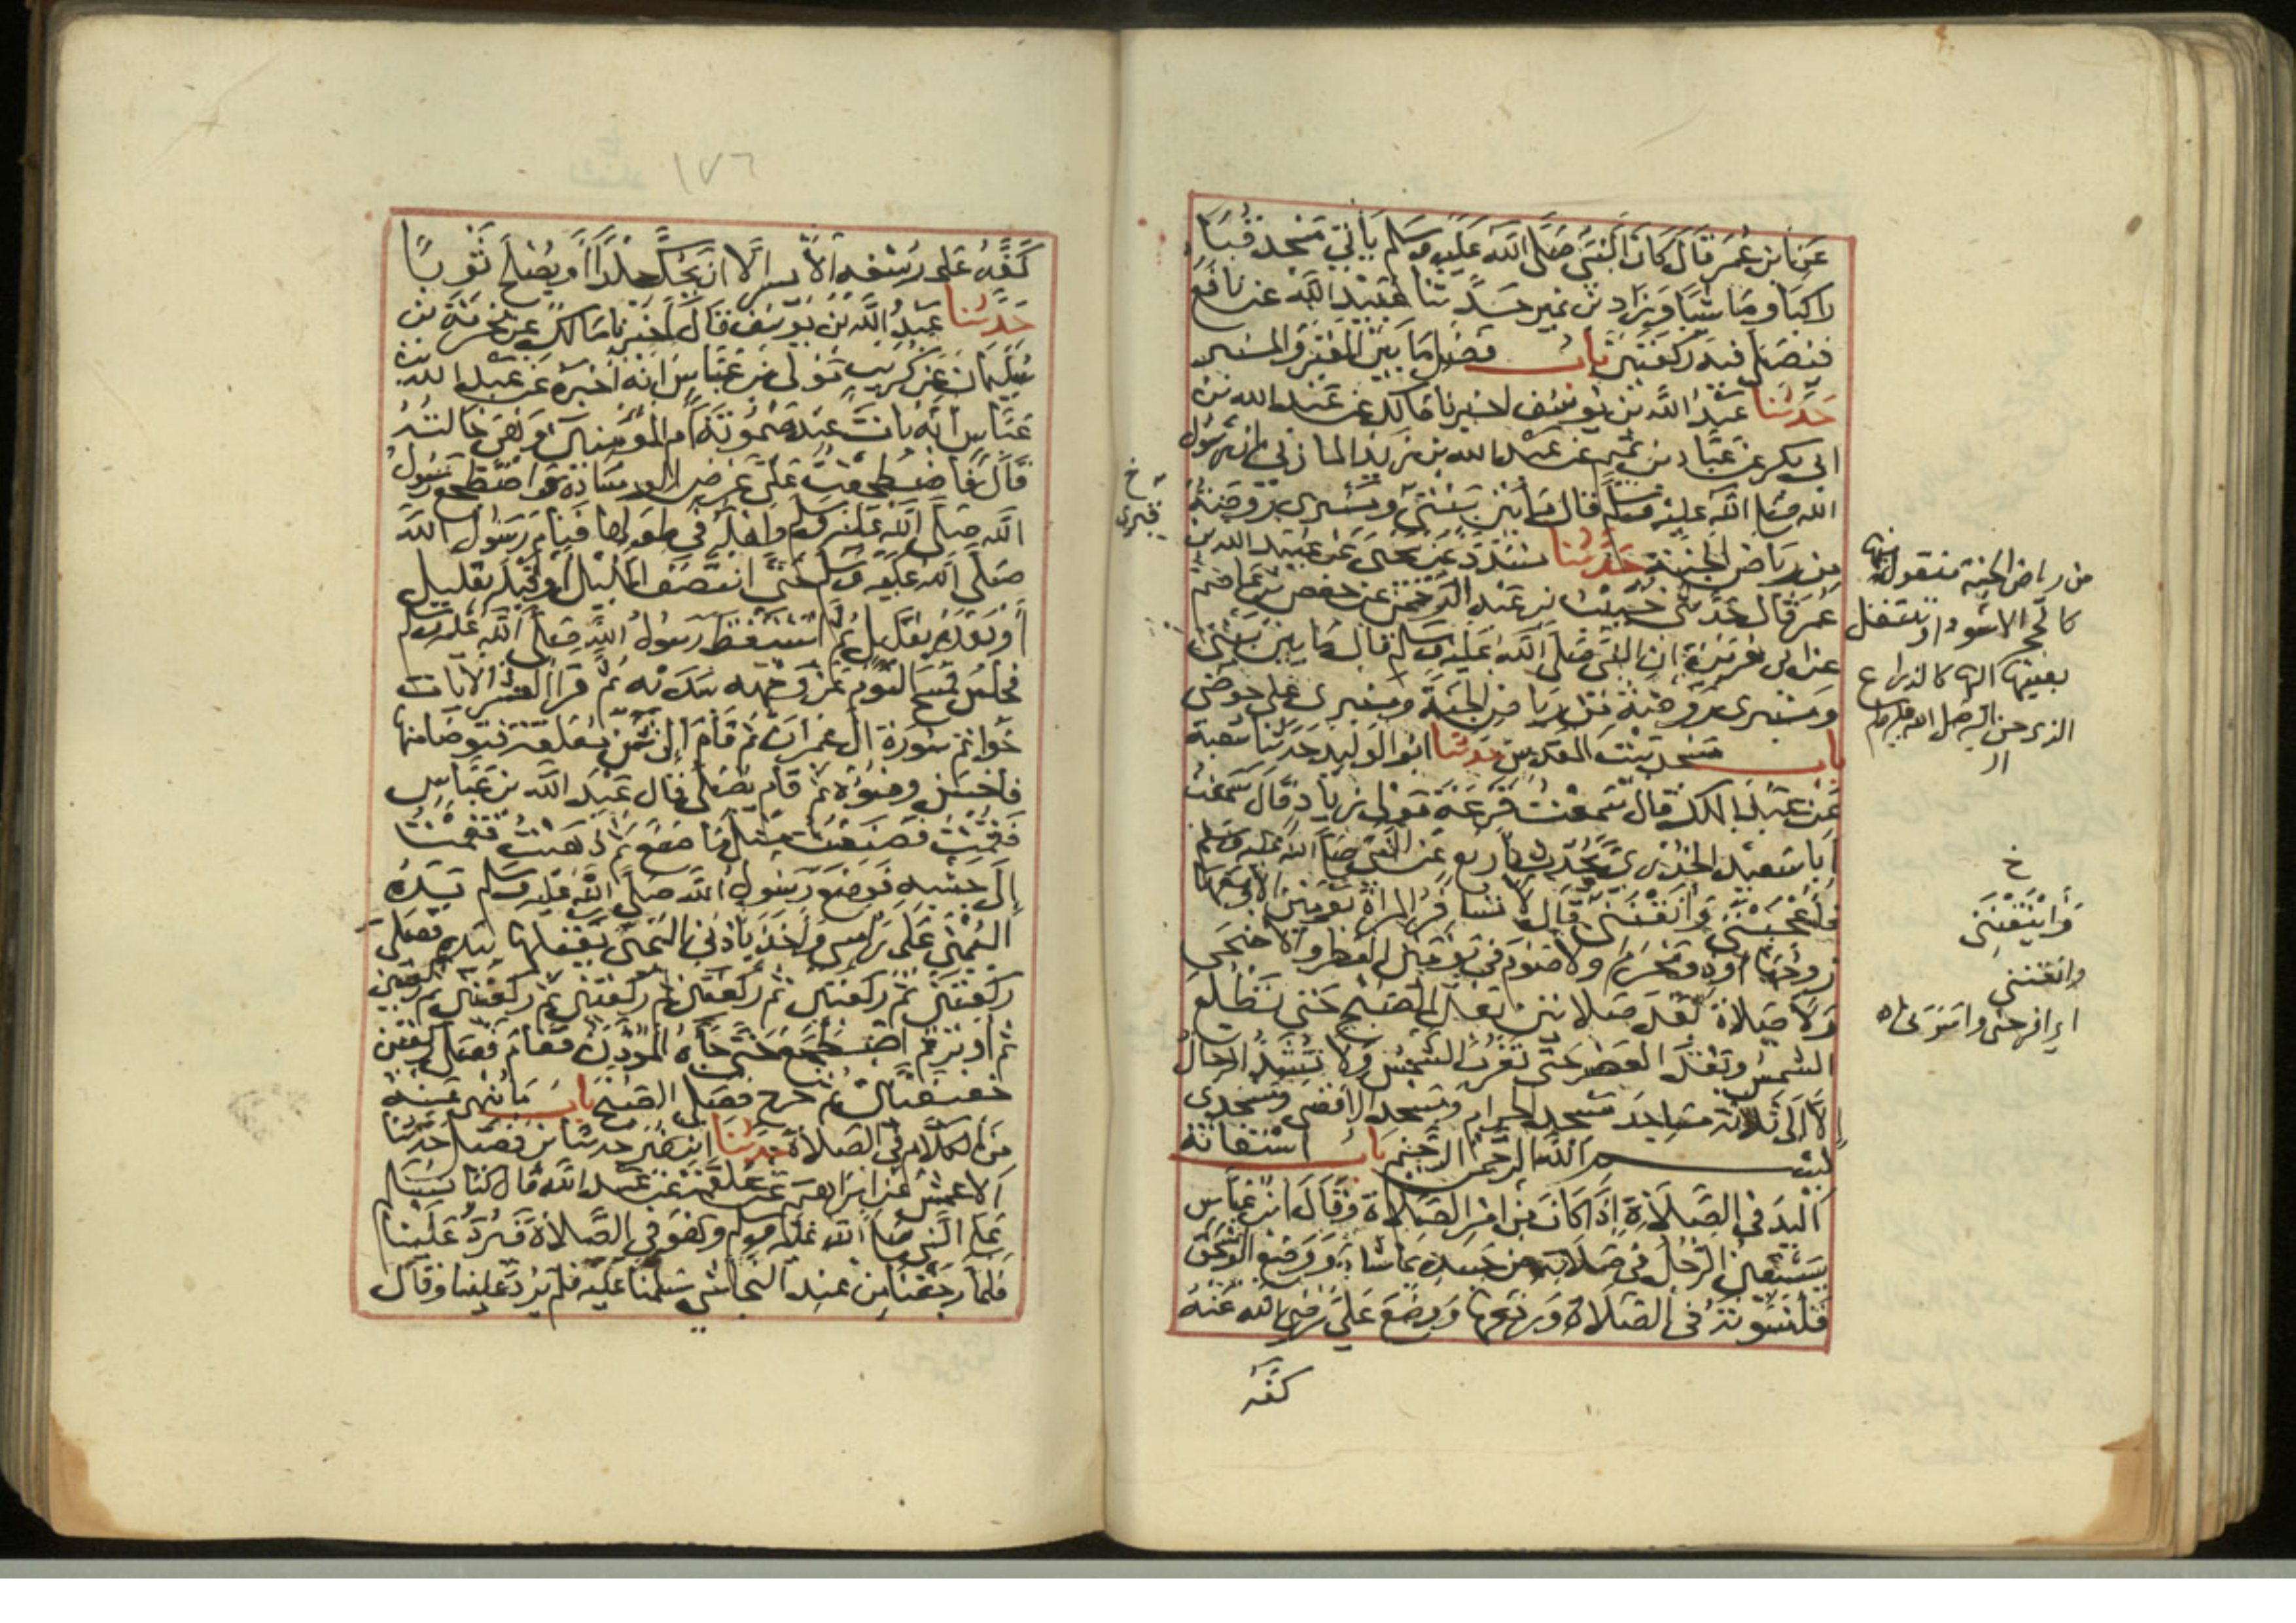 عن ابن عمر قال كان النبي صلى الله عليه وسلم ياتي مسجد قباء
راكبا وماشيا وزاد بن نمير حدثنا عبيد الله عن نافع
فيصلي فيه ركعتين باب فضل ما بين القبر والمنبر
حدثنا عبد الله بن يوسف اخبرنا مالك عن عبد الله بن
ابي بكر عن عباد بن تميم عن عبد الله بن زيد المازني ان رسول
الله صلى الله عليه وسلم قال ما بين بيتي ومنبري روضة
من رياض الجنة حدثنا مسدد عن يحيى عن عبيد الله بن
عمر قال حدثني خبيب بن عبد الرحمن عن حفص بن عاصم
عن ابي هريرة ان النبي صلى الله عليه وسلم قال ما بين بيتي
ومنبري روضة من رياض الجنة ومنبري على حوضي
باب مسجد بيت المقدس حدثنا ابو الوليد حدثنا شعبة
عن عبد الملك قال سمعت قزعة مولى زياد قال سمعت
ابا سعيد الخدري يحدث باربع عن النبي صلى الله عليه وسلم
فاعجبنني وانقنني قال لا تسافر المراة يومين الا معها
زوجها او ذو محرم ولا صوم في يومين الفطر والاضحى
ولا صلاة بعد صلاتين بعد الصبح حتى تطلع
الشمس وبعد العصر حتى تغرب الشمس ولا تشد الرحال
الا الى ثلاثة مساجد مسجد الحرام ومسجد الاقصى ومسجدي
بسم الله الرحمن الرحيم باب استعانة
اليد في الصلاة اذا كان من امر الصلاة وقال ابن عباس
يستعين الرجل في صلاته من جسده بما شاء ووضع ابو اسحق
قلنسوته في الصلاة ورفعها ووضع علي رضي الله عنه
كفه
خ
قبري
من رياض الجنة منقول منها
كالحجر الاسود او تنتقل
بعينها اليها كالجذع
الذي حن اليه صلى الله عليه وسلم
خ
وأينقنني
وانقنني
اي افرحنني واسررنني
١٧٦
كفه على رسغه الايسر الا ان يحك جلدا او يصلح ثوبا
حدثنا عبد الله بن يوسف قال اخبرنا مالك عن مخرمة بن
سليمان عن كريب مولى بن عباس انه اخبره عن عبد الله بن
عباس انه بات عند ميمونة ام المؤمنين وهي خالته
قال فاضطجعت على عرض الوسادة واضطجع رسول
الله صلى الله عليه وسلم واهله في طولها فنام رسول الله
صلى الله عليه وسلم حتى انتصف الليل او قبله بقليل
او بعده بقليل ثم استيقظ رسول الله صلى الله عليه وسلم
فجلس فمسح النوم عن وجهه بيده ثم قرا العشر الايات
خواتم سورة ال عمران ثم قام الى شن معلقة فتوضا منها
فاحسن وضوءه ثم قام يصلي قال عبد الله بن عباس
فقمت فصنعت مثل ما صنع ثم ذهبت فقمت
الى جنبه فوضع رسول الله صلى الله عليه وسلم يده
اليمنى على راسي واخذ باذني اليمنى يفتلها بيده فصلى
ركعتين ثم ركعتين ثم ركعتين ثم ركعتين ثم ركعتين ثم ركعتين
ثم اوتر ثم اضطجع حتى جاءه المؤذن فقام فصلى ركعتين
خفيفتين ثم خرج فصلى الصبح باب ما ينهى عنه
من الكلام في الصلاة حدثنا ابن نمير حدثنا بن فضيل حدثنا
الاعمش عن ابراهيم عن علقمة عن عبد الله قال كنا نسلم
على النبي صلى الله عليه وسلم وهو في الصلاة فيرد علينا
فلما رجعنا من عند النجاشي سلمنا عليه فلم يرد علينا وقال